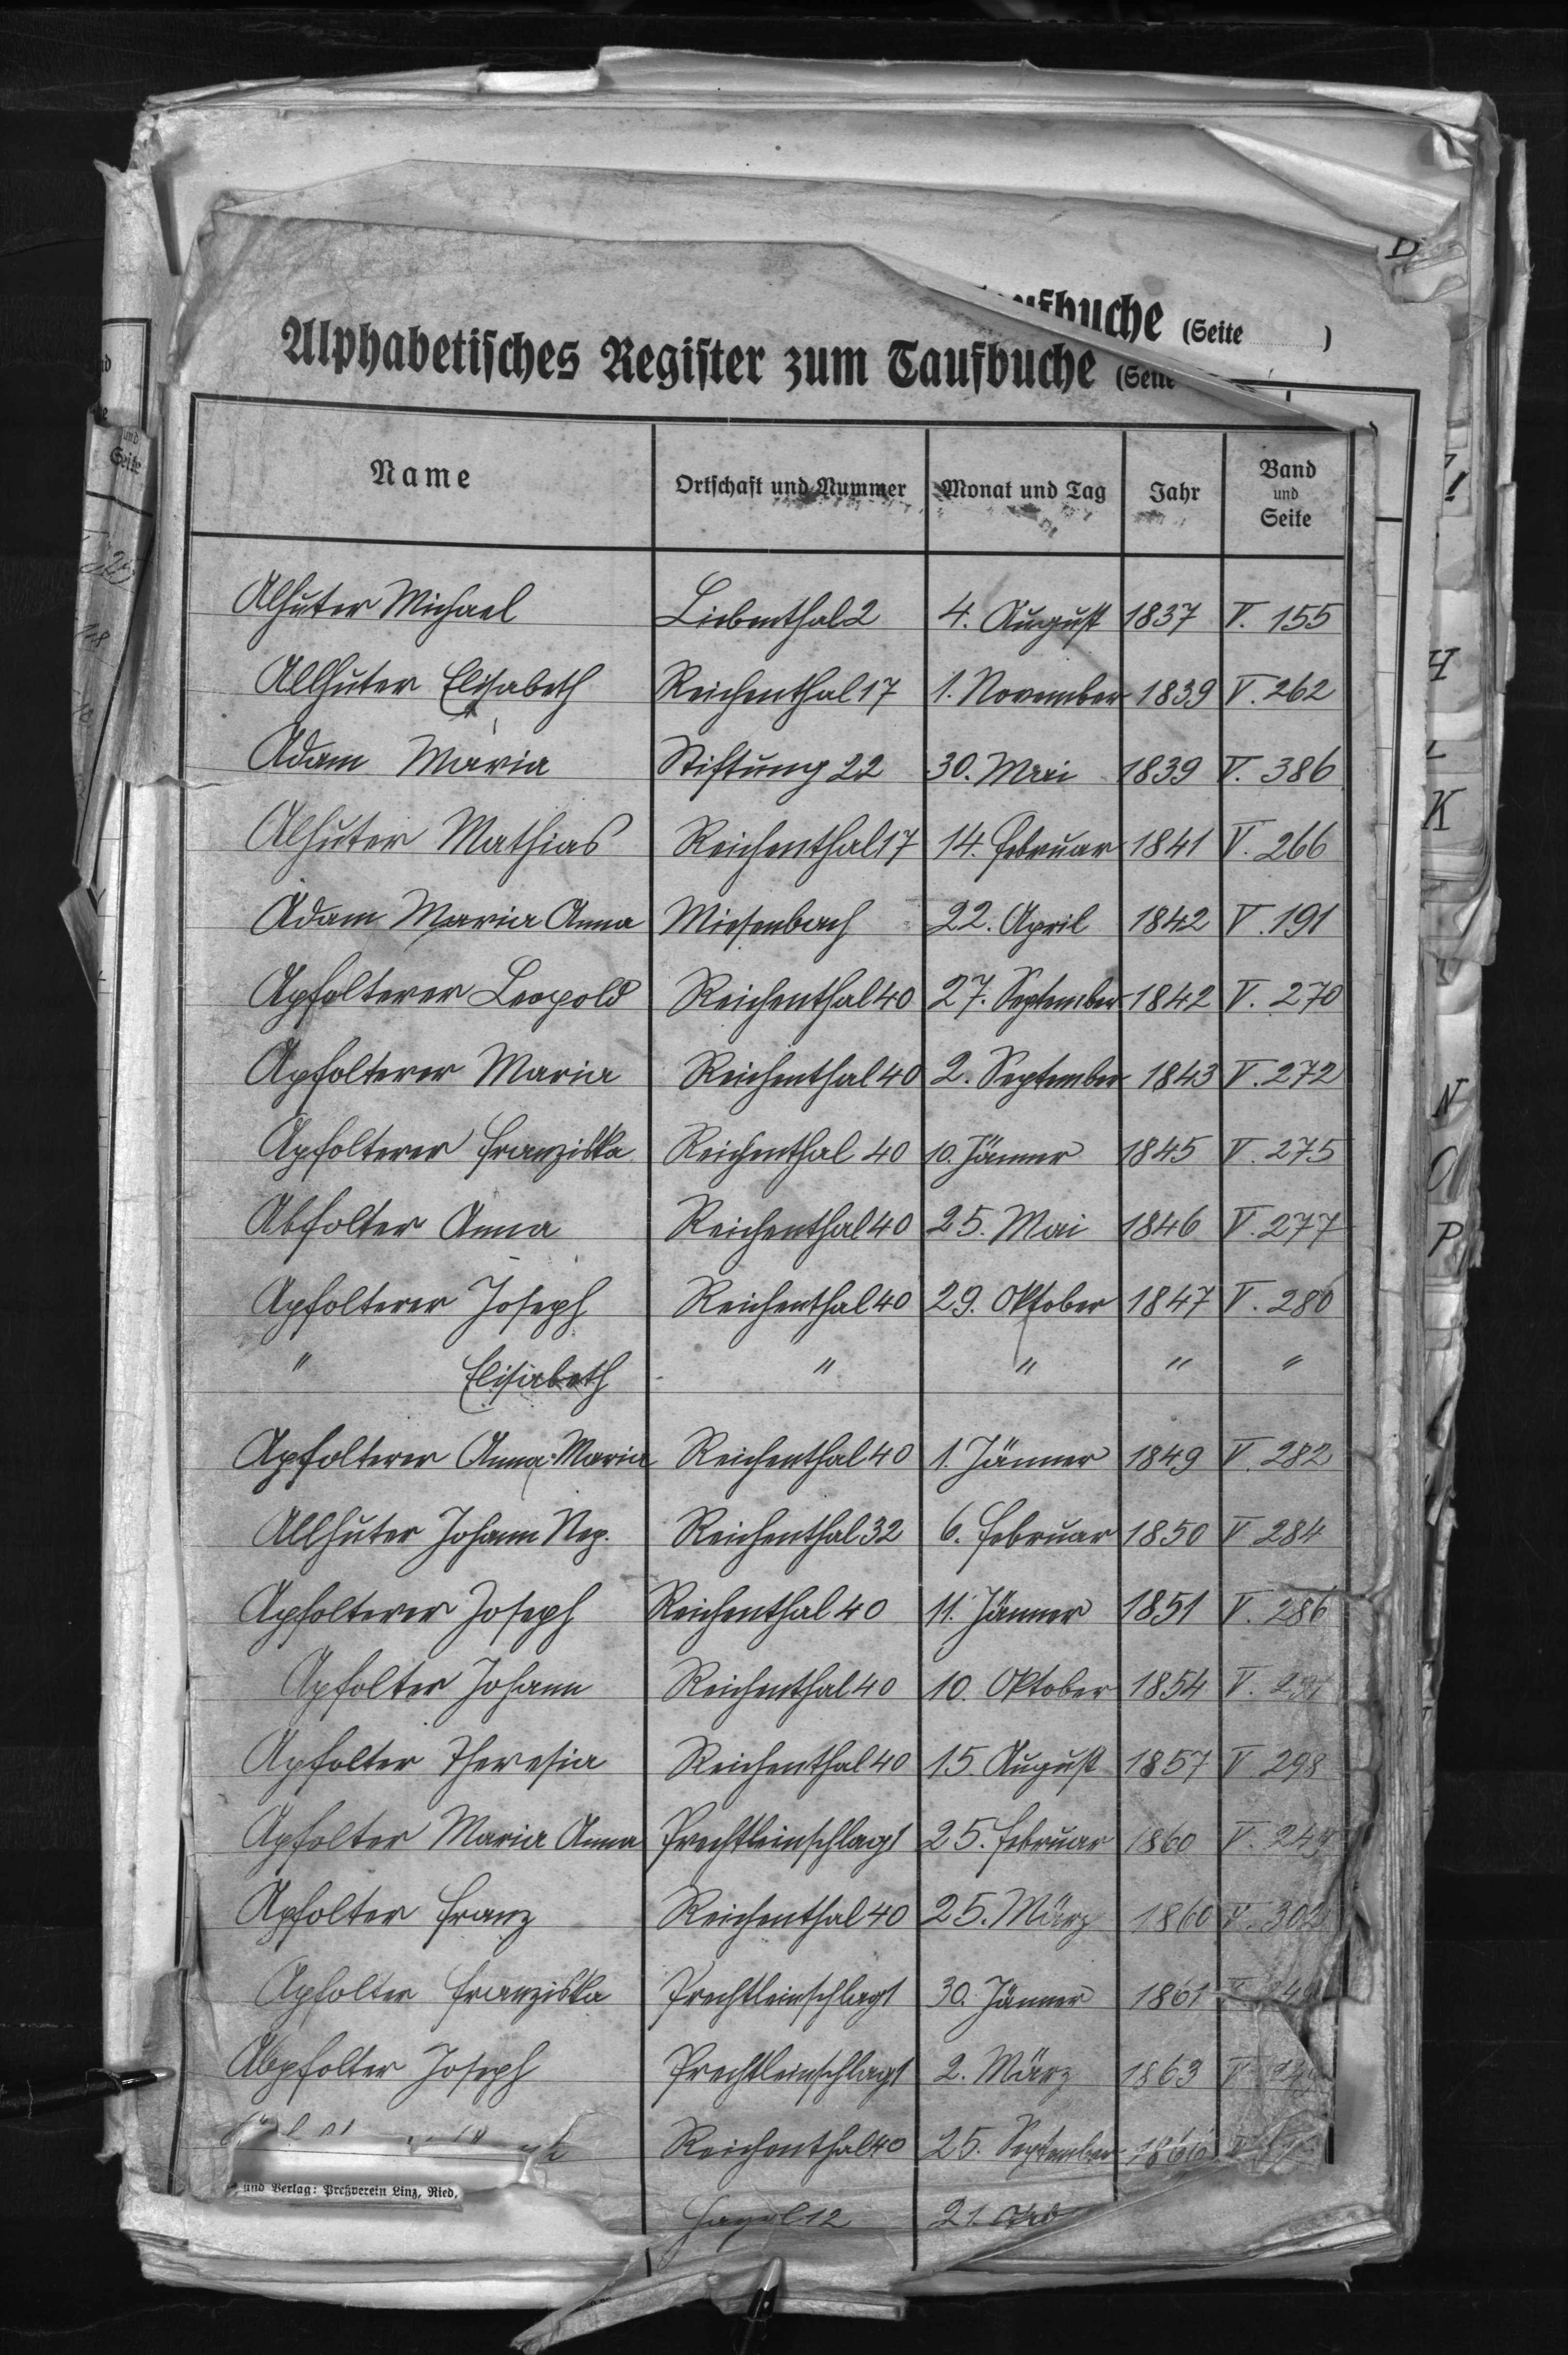 Taufbuche (Seite )
Alphabetisches Register zum Taufbuche (Seite
Name Ortschaft und Nummer Monat und Tag Jahr Band und Seite
Alhuter Michael Liebenthal 2 4. August 1837 V. 155
Allhuter Elisabeth Reichenthal 17 1. November 1839 V. 262
Adam Maria Stiftung 22 30. Mai 1839 V. 386
Alhuter Mathias Reichenthal 17 14. Februar 1841 V. 266
Adam Maria Anna Miesenbach 22. April 1842 V. 191
Apfolterer Leopold Reichenthal 40 27. September 1842 V. 270
Apfolterer Maria Reichenthal 40 2. September 1843 V. 272
Apfolterer Franziska Reichenthal 40 10. Jänner 1845 V. 275
Abfolter Anna Reichenthal 40 25. Mai 1846 V. 277
Apfolterer Joseph Reichenthal 40 29. Oktober 1847 V. 280
" Elisabeth " " " "
Apfolterer Anna Maria Reichenthal 40 1. Jänner 1849 V. 282
Allhuter Johann Nep. Reichenthal 32 6. Februar 1850 V. 284
Apfolterer Joseph Reichenthal 40 11. Jänner 1851 V. 286
Apfolter Johann Reichenthal 40 10. Oktober 1854 V.
Apfolter Theresia Reichenthal 40 15. August 1857 V. 298
Apfolter Maria Anna Prechtleinschlag 1 25. Februar 1860 V.
Apfolter Franz Reichenthal 40 25. März 1860 V.
Apfolter Franziska Prechtleinschlag 1 30. Jänner 1861
Abpfolter Joseph Prechtleinschlag 1 2. März 1863 V.
Reichenthal 40 25. September 1866
und Verlag: Preßverein Linz, Ried.
12 21.
D
H
L
K
N
O
P
und
Seite